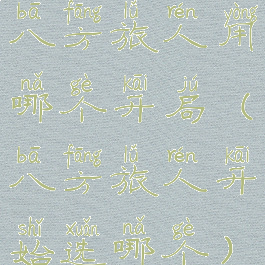 bā fāng lǚ rén yòng
八方旅人用
nǎ gè kāi jú
哪个开局（
bā fāng lǚ rén kāi
八方旅人开
shǐ xuǎn nǎ gè
始选哪个）